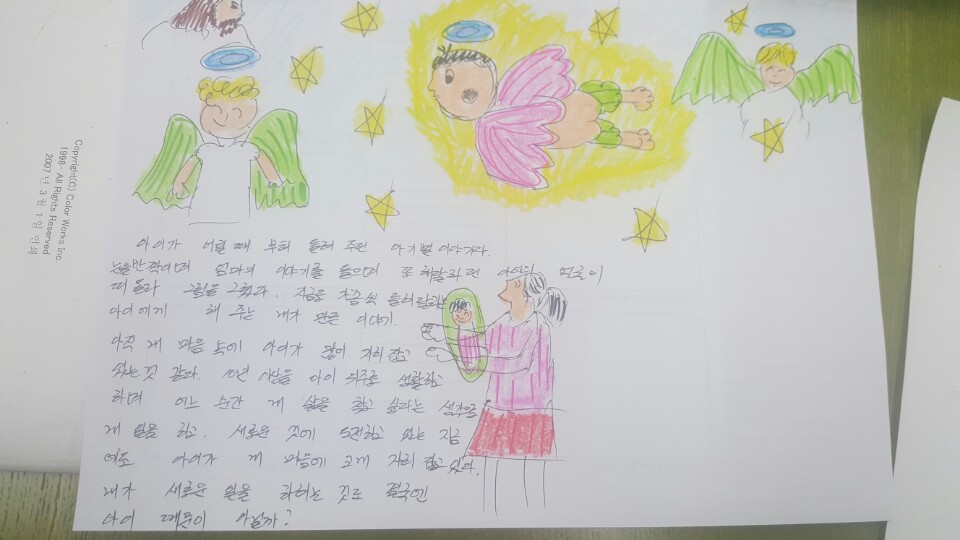 Copyright(C) Color Works Inc.
1998- All Rights Reserved
2007년 3월 1일 인쇄
아이가 어릴 때 부터 들려 주던 아기별 이야기다.
눈을 반짝이며 엄마의 이야기를 들으며 또 해달라던 아이의 얼굴이
떠올라 그림을 그렸다. 지금도 가끔씩 들려달라는
아이에게 해 주는 내가 만든 이야기.
아직 내 마음 속에 아이가 많이 자리 잡고
있는 것 같다. 10년 이상을 아이 위주로 생활하고
하며 어느 순간 내 삶을 찾고 싶다는 생각으로
내 일을 하고. 새로운 것에 도전하고 있는 지금
에도 아이가 내 마음에 크게 자리 잡고 있다.
내가 새로운 일을 하는 것도 결국엔
아이 때문이 아닐까?